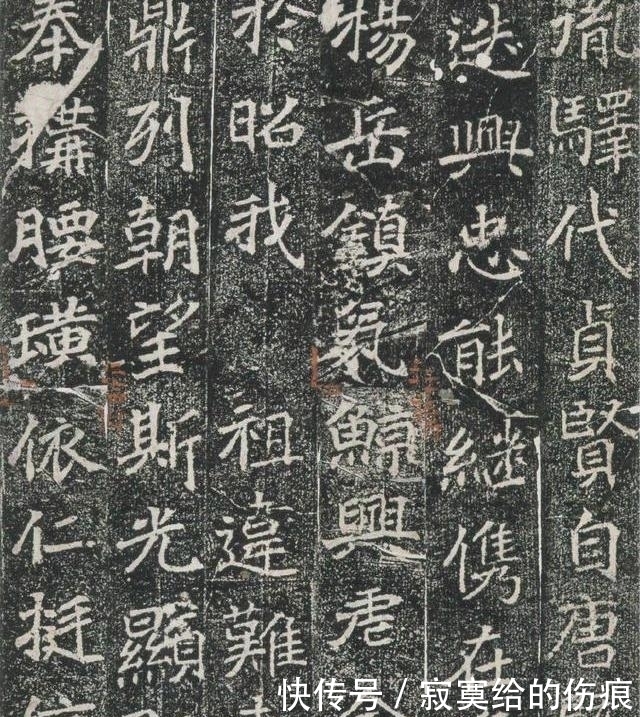 胤驛代貞賢自唐
迭興忠能継儁在
楊岳鎮氣鯨興君
於昭我 祖違難
鼎列朝望斯光顯
奉搆腰璜依仁挺
快传号 / 寂寞给的伤痕